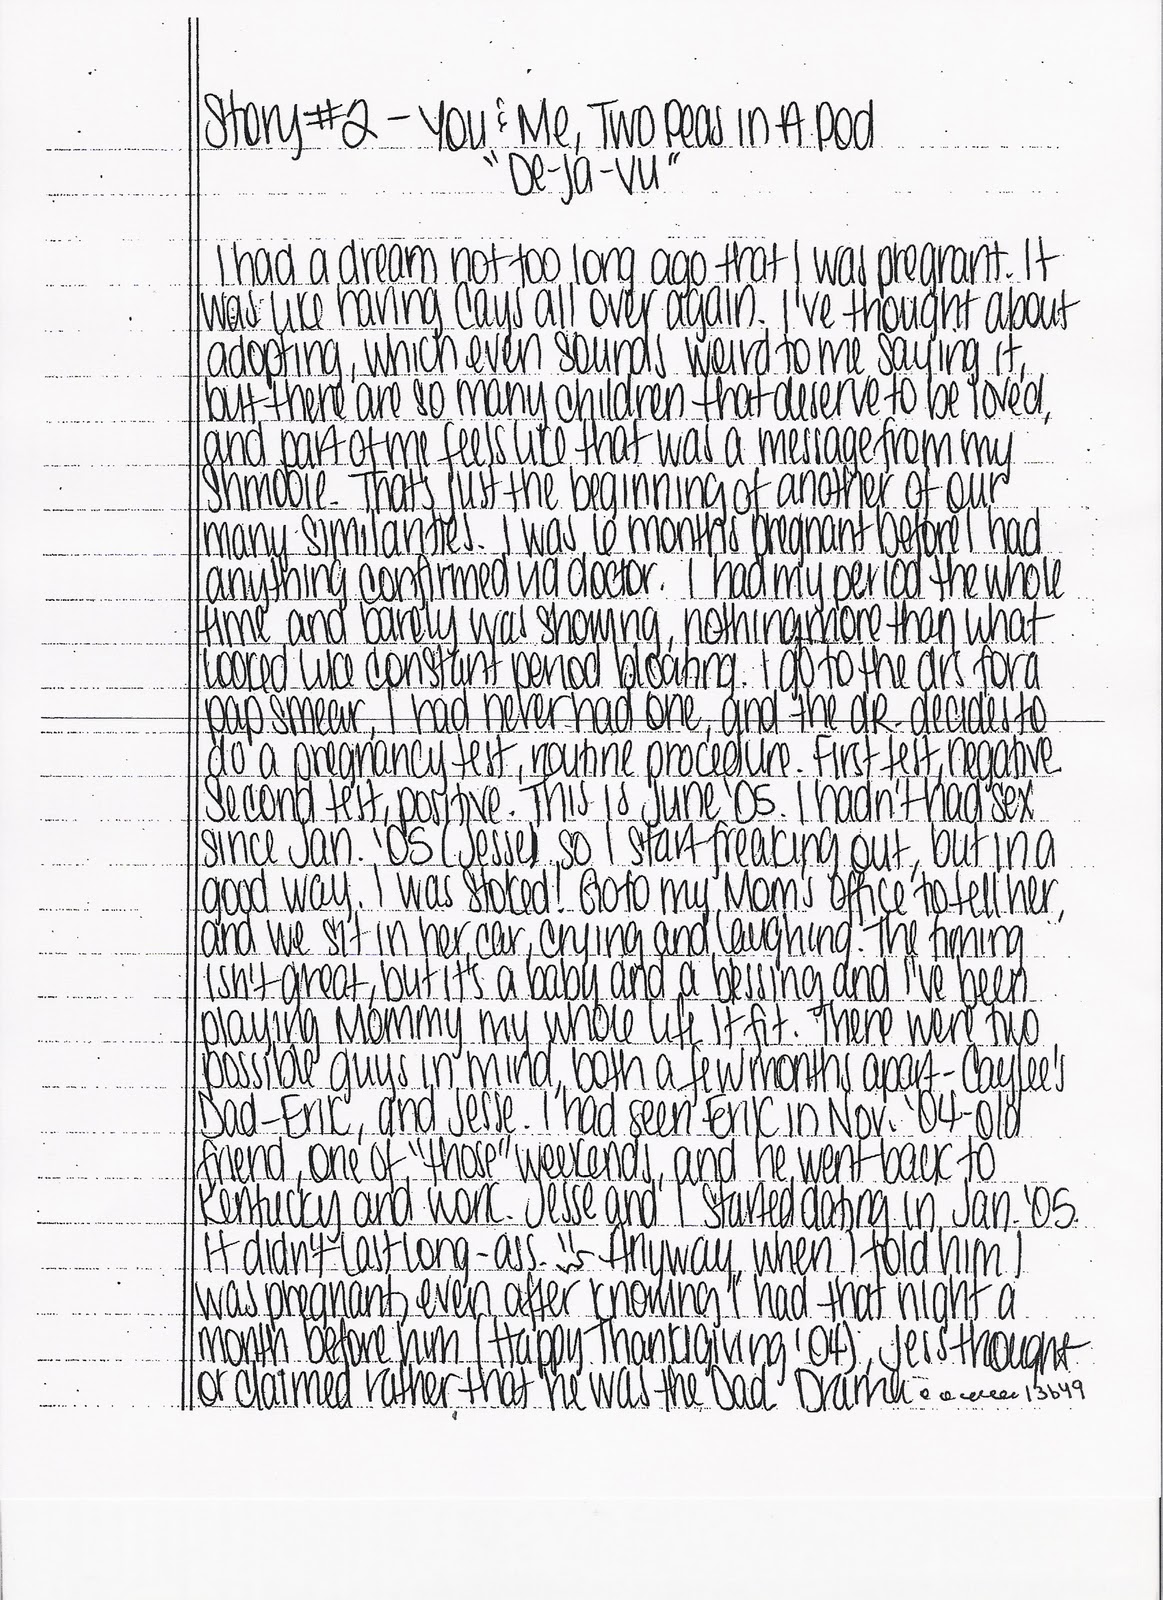 Story #2 - You & Me, Two Peas In A Pod
"De-Ja-Vu"
I had a dream not too long ago that I was pregnant. It
was like having Cays all over again. I've thought about
adopting, which even sounds weird to me saying it,
but there are so many children that deserve to be loved,
and part of me feels like that was a message from my
Shmooie. That's just the beginning of another of our
many similarities. I was 6 months pregnant before I had
anything confirmed via doctor. I had my period the whole
time and barely was showing, nothing more than what
looked like constant period bloating. I go to the drs for a
pap smear, I had never had one, and the dr. decides to
do a pregnancy test, routine procedure. First test, negative
Second test, positive. This is June '05. I hadn't had sex
since Jan. '05 (Jesse) so I start freaking out, but in a
good way. I was stoked! Go to my Mom's office to tell her,
and we sit in her car, crying and laughing. The timing
isn't great, but it's a baby and a blessing and I've been
playing Mommy my whole life It fit. There were two
possible guys in mind, both a few months apart - Caylee's
Dad - Eric, and Jesse. I had seen Eric in Nov. '04 - old
friend, one of "those" weekends, and he went back to
Kentucky and work. Jesse and I started dating in Jan. '05.
It didn't last long - ass. Anyway, when I told him I
was pregnant, even after knowing I had that night a
month before him (Happy Thanksgiving '04), Jess thought
or claimed rather that he was the Dad. Drama 13649